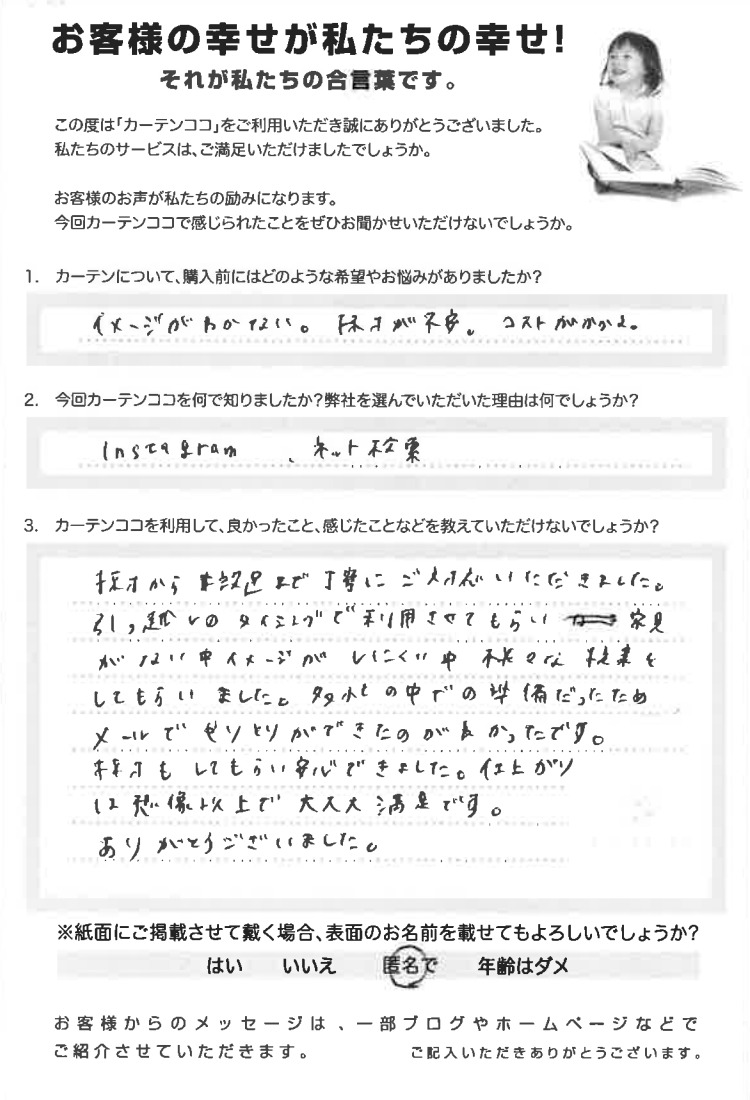 お客様の幸せが私たちの幸せ!
それが私たちの合言葉です。
この度は「カーテンココ」をご利用いただき誠にありがとうございました。
私たちのサービスは、ご満足いただけましたでしょうか。
お客様のお声が私たちの励みになります。
今回カーテンココで感じられたことをぜひお聞かせいただけないでしょうか。
1. カーテンについて、購入前にはどのような希望やお悩みがありましたか?
イメージがわかない。採寸が不安。コストがかかる。
2. 今回カーテンココを何で知りましたか?弊社を選んでいただいた理由は何でしょうか?
Instagram 、ネット検索
3. カーテンココを利用して、良かったこと、感じたことなどを教えていただけないでしょうか?
採寸から 設置まで丁寧にご対応いただきました。
引っ越しのタイミングで利用させてもらい 家具
がない中イメージがしにくい中 様々な提案を
してもらいました。多忙の中での準備だったため
メールでやりとりができたのが良かったです。
採寸もしてもらい安心できました。仕上がり
は想像以上で大大大満足です。
ありがとうございました。
※紙面にご掲載させて戴く場合、表面のお名前を載せてもよろしいでしょうか?
はい いいえ 匿名で 年齢はダメ
お客様からのメッセージは、一部ブログやホームページなどで
ご紹介させていただきます。 ご記入いただきありがとうございます。